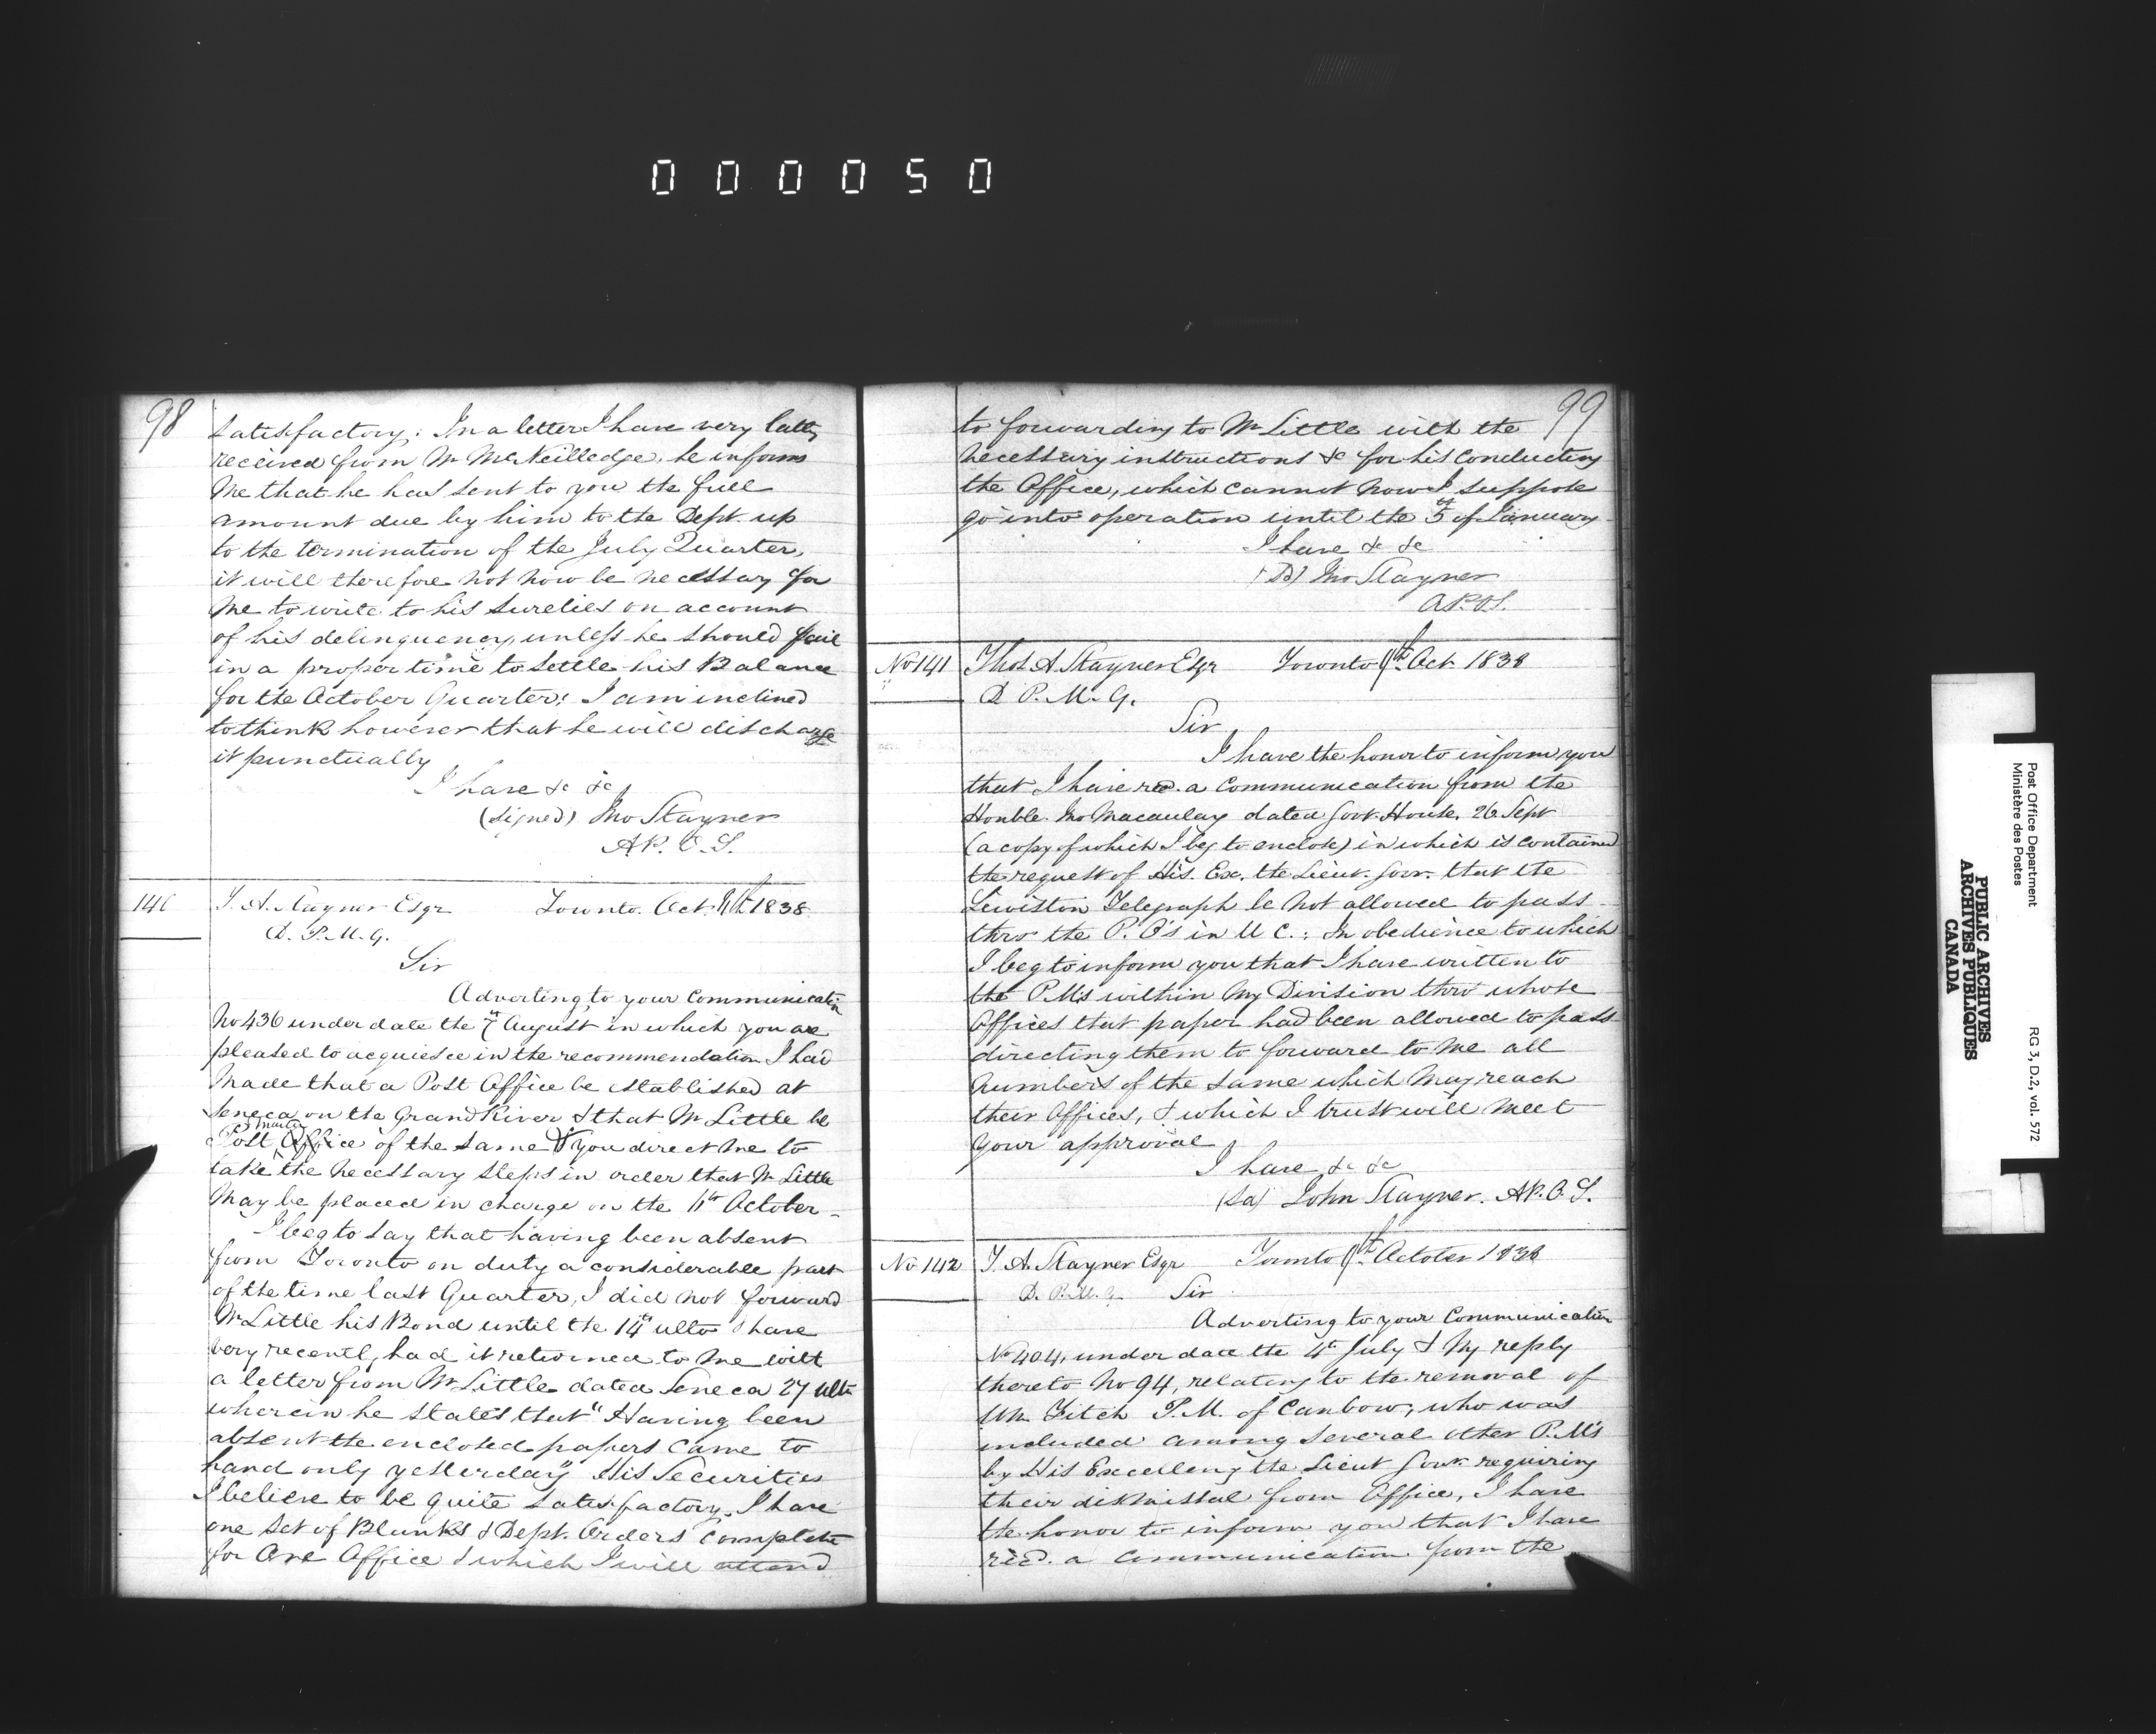 000050
98
Satisfactory; In a letter I have very lately
received from Mr McNeilledge, he informs
me that he has sent to you the full
amount due by him to the Dept. up
to the termination of the July Quarter,
it will therefore not now be necessary for
me to write to his Sureties on account
of his delinquency, unless he should fail
in a proper time to settle his Balance
for the October Quarter; I am inclined
to think however that he will discharge
it punctually
I have &c &c
(signed) Jno Stayner
A P. O. S.
140
T. A. Stayner Esqr Toronto. Oct. 1838
D. P. M. G.
Sir
Adverting to your Communication
No 436 under date the 7th August in which you are
pleased to acquiesce in the recommendation I had
made that a Post Office be established at
Seneca on the Grand River & that Mr Little be
Post master Office of the same & you direct me to
take the necessary steps in order that Mr Little
may be placed in charge on the October
I beg to say that having been absent
from Toronto on duty a considerable part
of the time last Quarter, I did not forward
Mr Little his Bond until the 14th ulto I have
very recently had it returned to me with
a letter from Mr Little dated Seneca 27 ulto
wherein he states that "Having been
absent the enclosed papers came to
hand only yesterday" His Securities
I believe to be quite satisfactory. I have
one set of Blanks & Dept. Orders complete
for one Office & which I will attend
99
to forwarding to Mr Little with the
necessary instructions &c for his conducting
the Office, which cannot now I suppose
go into operation until the 5th of January
I have &c &c
(Sd) Jno Stayner
A P. O S.
No 141
Thos A Stayner Esqr Toronto Oct 1838
D P. M. G.
Sir
I have the honor to inform you
that I have recd. a communication from the
Honble. Jno Macaulay dated Govt. House, 26 Sept
(a copy of which I beg to enclose) in which is contained
the request of His. Exc. the Lieut. Govr. that the
Lewiston Telegraph be not allowed to pass
thro' the P. O's in U C.: In obedience to which
I beg to inform you that I have written to
the P.Ms within my Division thro' whose
Offices that paper had been allowed to pass
directing them to forward to me all
numbers of the same which may reach
their Offices, & which I trust will meet
your approval
I have &c &c
(Sd) John Stayner. A P. O. S.
No 142
T. A. Stayner Esqr Toronto October 1838
D. P. M. G Sir
Adverting to your Communication
No 404, under date the 4th July & my reply
thereto No 94, relating to the removal of
Mr. Fitch P. M. of Canbow, who was
included among several other P.M's
by His Excellency the Lieut Govr. requiring
their dismissal from Office, I have
the honor to inform you that I have
recd. a communication from the
Post Office Department
Ministère des Postes
RG 3, D.2, vol. 572
PUBLIC ARCHIVES
ARCHIVES PUBLIQUES
CANADA